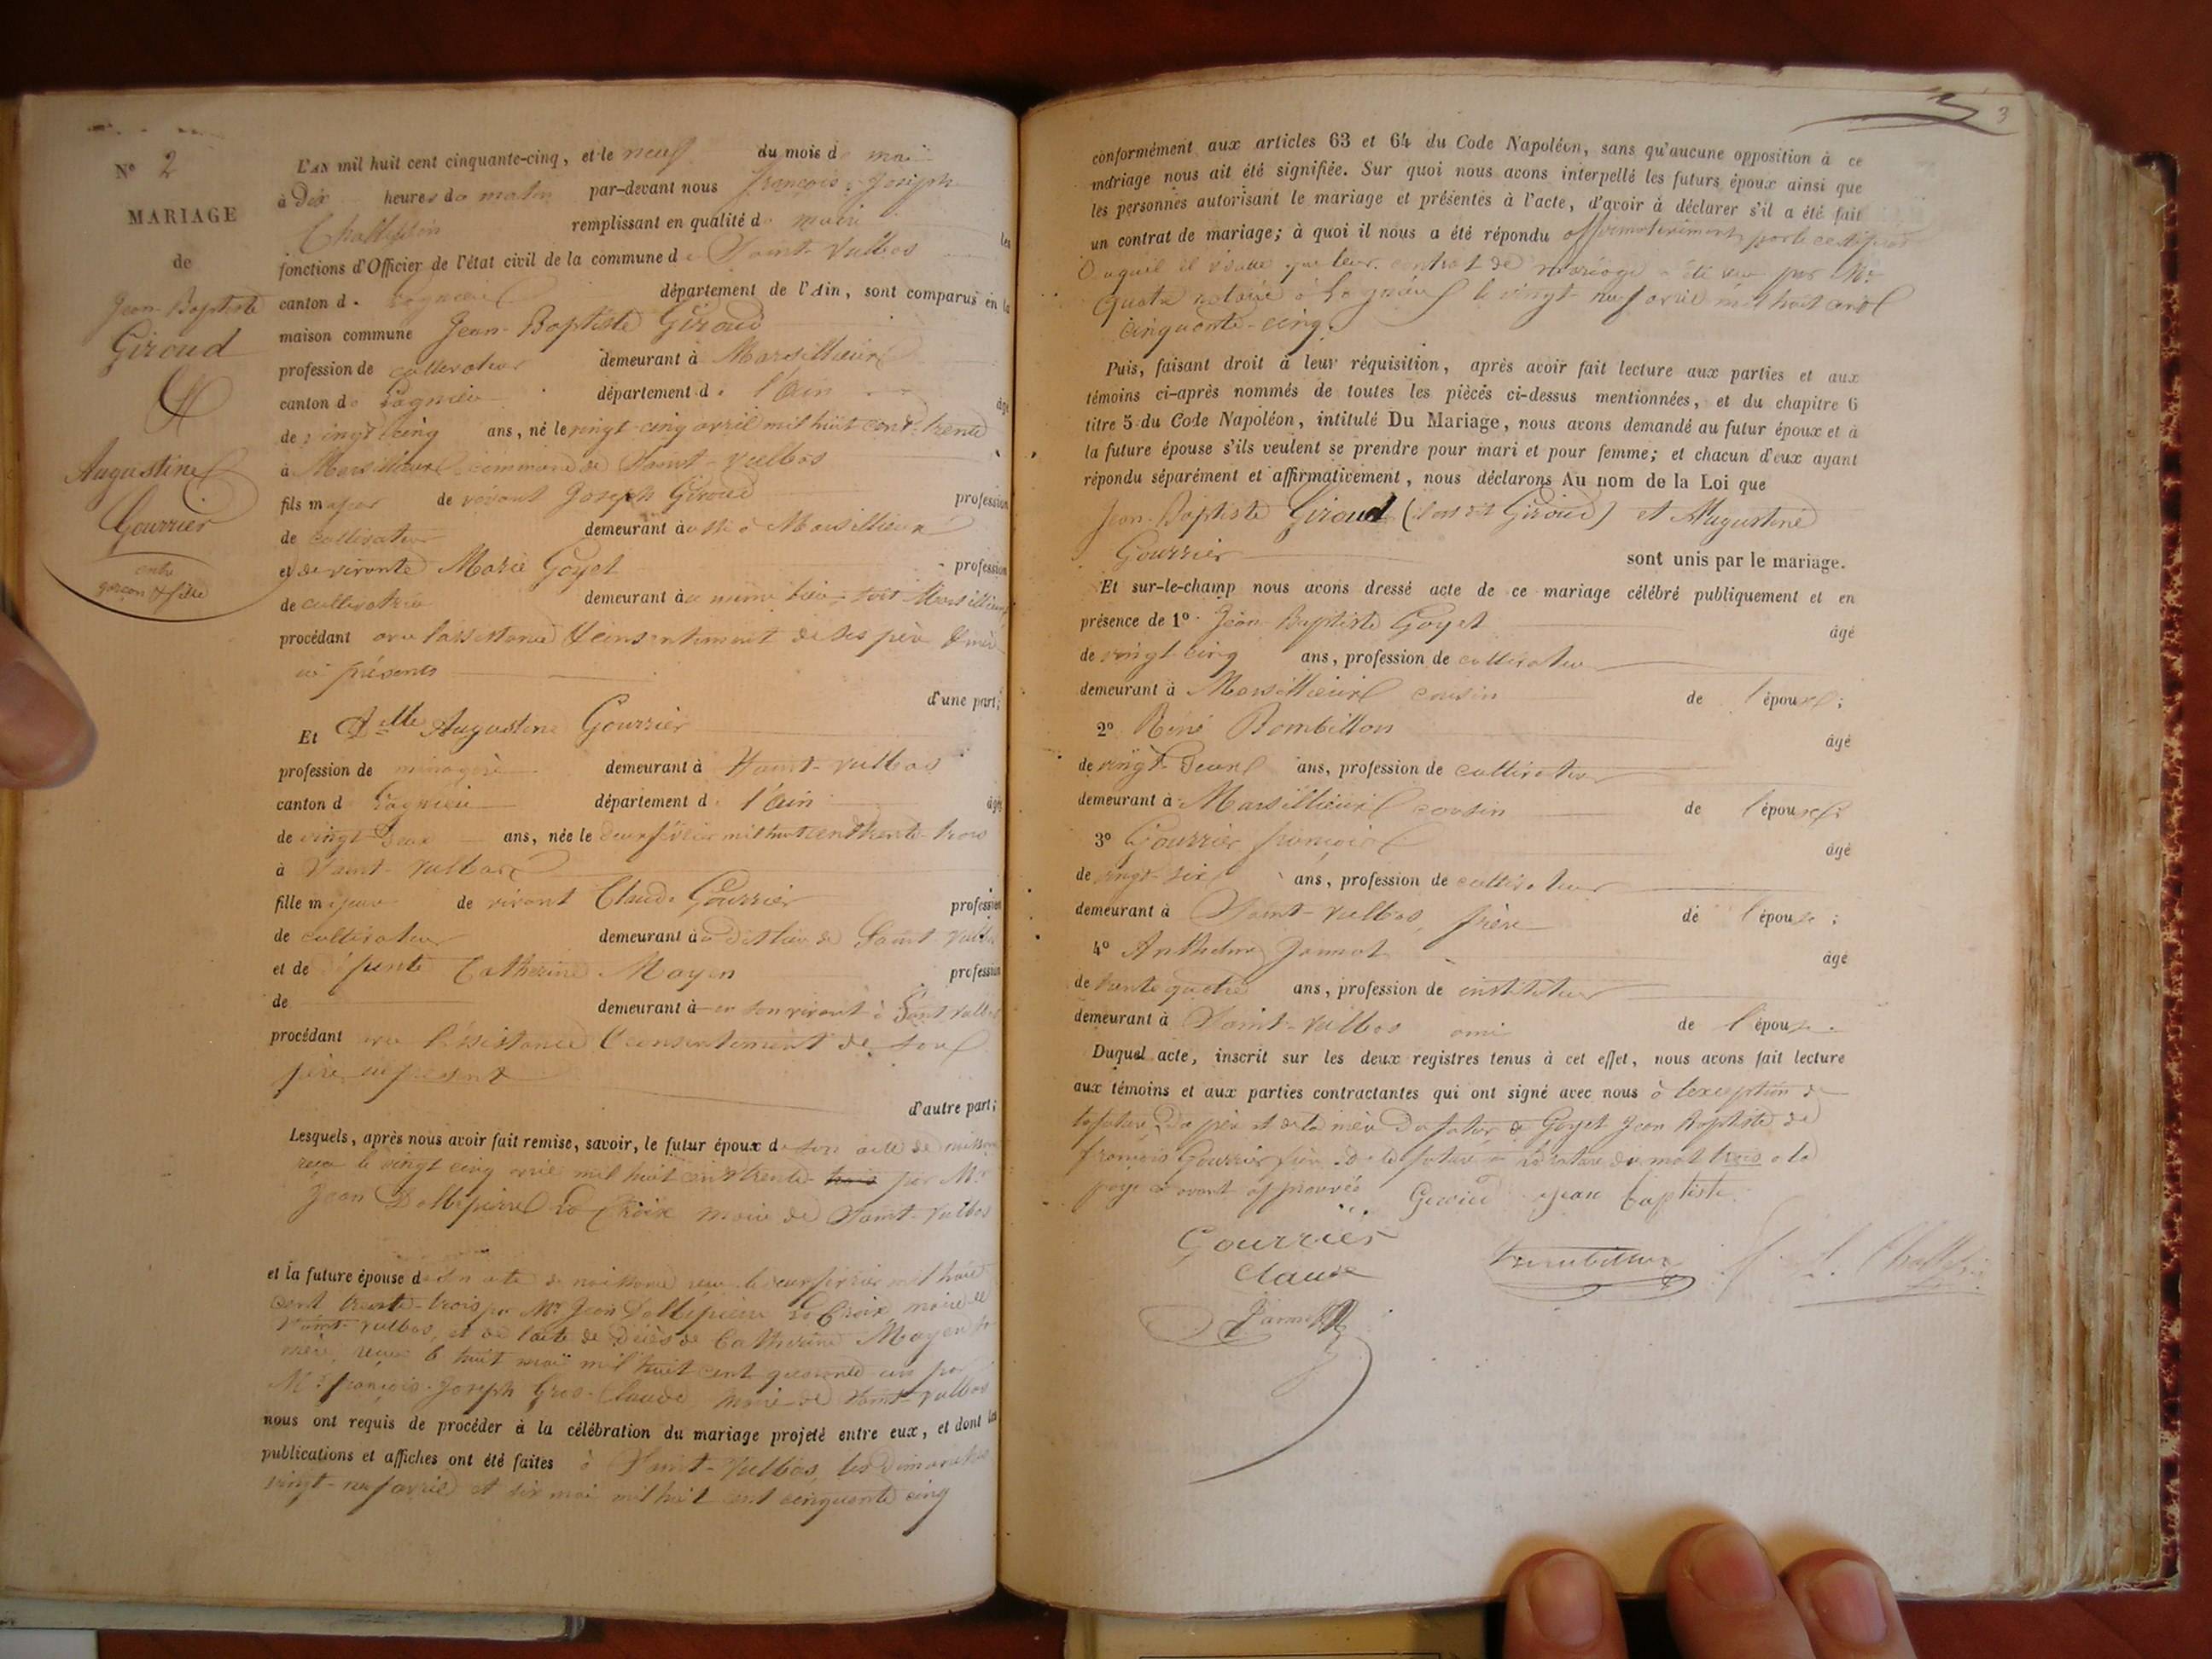 N° 2
MARIAGE
de
Jean-Baptiste
Giroud
&
Augustine
Gourrier
entre
garçon & fille
L'AN mil huit cent cinquante-cinq, et le neuf du mois de mai
à Dix heures du matin par-devant nous françois-Joseph
remplissant en qualité de maire les
fonctions d'Officier de l'état civil de la commune de Saint-Vulbas
canton de Lagnieu département de l'Ain, sont comparus en la
maison commune Jean-Baptiste Giroud
profession de cultivateur demeurant à Marsillieux
canton de Lagnieu département de l'Ain âgé
de vingt cinq ans, né le vingt-cinq avril mil huit cent trente
à Marsillieux commune de Saint-Vulbas
fils majeur de vivant Joseph Giroud profession
de cultivateur demeurant aussi à Marsillieux
et de vivante Marie Goyet profession
de cultivatrice demeurant au même lieu Marsillieux
procédant avec l'assistance & consentement de ses père & mère
ici présents
d'une part;
Et Dlle Augustine Gourrier
profession de ménagère demeurant à Saint-Vulbas
canton de Lagnieu département de l'Ain âgée
de vingt-deux ans, née le deux février mil huit cent trente-trois
à Saint-Vulbas
fille majeure de vivant Claude Gourrier profession
de cultivateur demeurant au dit lieu de Saint-Vulbas
et de défunte Catherine Moyen profession
de demeurant en son vivant à Saint-Vulbas
procédant avec l'assistance & consentement de son
père ici présent
d'autre part;
Lesquels, après nous avoir fait remise, savoir, le futur époux de son acte de naissance
reçu le vingt cinq avril mil huit cent trente trois par Mr
Jean Dallepierre La Croix maire de Saint-Vulbas
et la future épouse de son acte de naissance reçu le deux février mil huit
cent trente-trois par Mr Jean Dallepierre La Croix maire de
Saint-Vulbas, et de l'acte de décès de Catherine Moyen sa
mère, reçu le huit mai mil huit cent quarante-un par
Mr françois-Joseph Gros-Claude maire de Saint-Vulbas
nous ont requis de procéder à la célébration du mariage projeté entre eux, et dont les
publications et affiches ont été faites à Saint-Vulbas, les dimanches
vingt-neuf avril et six mai mil huit cent cinquante cinq
3
conformément aux articles 63 et 64 du Code Napoléon, sans qu'aucune opposition à ce
mariage nous ait été signifiée. Sur quoi nous avons interpellé les futurs époux ainsi que
les personnes autorisant le mariage et présentes à l'acte, d'avoir à déclarer s'il a été fait
un contrat de mariage; à quoi il nous a été répondu affirmativement par le certificat
Duquel il résulte que leur contrat de mariage a été reçu par Mr
notaire à Lagnieu le vingt-neuf avril mil huit cent
cinquante-cinq.
Puis, faisant droit à leur réquisition, après avoir fait lecture aux parties et aux
témoins ci-après nommés de toutes les pièces ci-dessus mentionnées, et du chapitre 6
titre 5 du Code Napoléon, intitulé Du Mariage, nous avons demandé au futur époux et à
la future épouse s'ils veulent se prendre pour mari et pour femme; et chacun d'eux ayant
répondu séparément et affirmativement, nous déclarons Au nom de la Loi que
Jean-Baptiste Giroud Giroud) et Augustine
Gourrier sont unis par le mariage.
Et sur-le-champ nous avons dressé acte de ce mariage célébré publiquement et en
présence de 1° Jean Baptiste Goyet âgé
de vingt-cinq ans, profession de cultivateur
demeurant à Marsillieux cousin de l'époux;
2° René Bombillon âgé
de vingt-deux ans, profession de cultivateur
demeurant à Marsillieux cousin de l'époux;
3° Gourrier françois âgé
de vingt-six ans, profession de cultivateur
demeurant à Saint-Vulbas, frère de l'épouse;
4° Anthelme Jannot âgé
de trente quatre ans, profession de instituteur
demeurant à Saint-Vulbas ami de l'épouse.
Duquel acte, inscrit sur les deux registres tenus à cet effet, nous avons fait lecture
aux témoins et aux parties contractantes qui ont signé avec nous à l'exception de
la future, du père et de la mère du futur de Goyet Jean Baptiste de
françois Gourrier frère de la future la rature du mot trois à la
page avant approuvée Jean baptiste
Gourrier
Claude